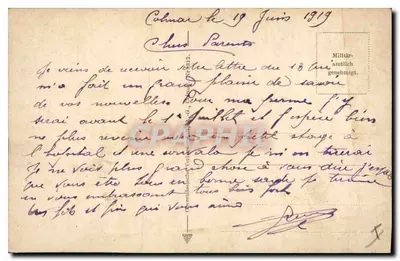 Colmar le 19 Juin 1919
Chers Parents
Militär-
amtlich
genehmigt.
Je viens de recevoir votre lettre du 13 qui
m'a fait un grand plaisir de savoir
de vos nouvelles. Pour ma perme j'y
serai avant le 1er Juillet et j'espère bien
ne plus revenir un petit stage à
l'hôpital et une je m'en tirerai
Je ne vois plus grand chose à vous dire j'espère
que vous êtes tous en bonne santé Je termine
en vous embrassant tous bien fort
Votre fils et qui vous aime
CPARAMA